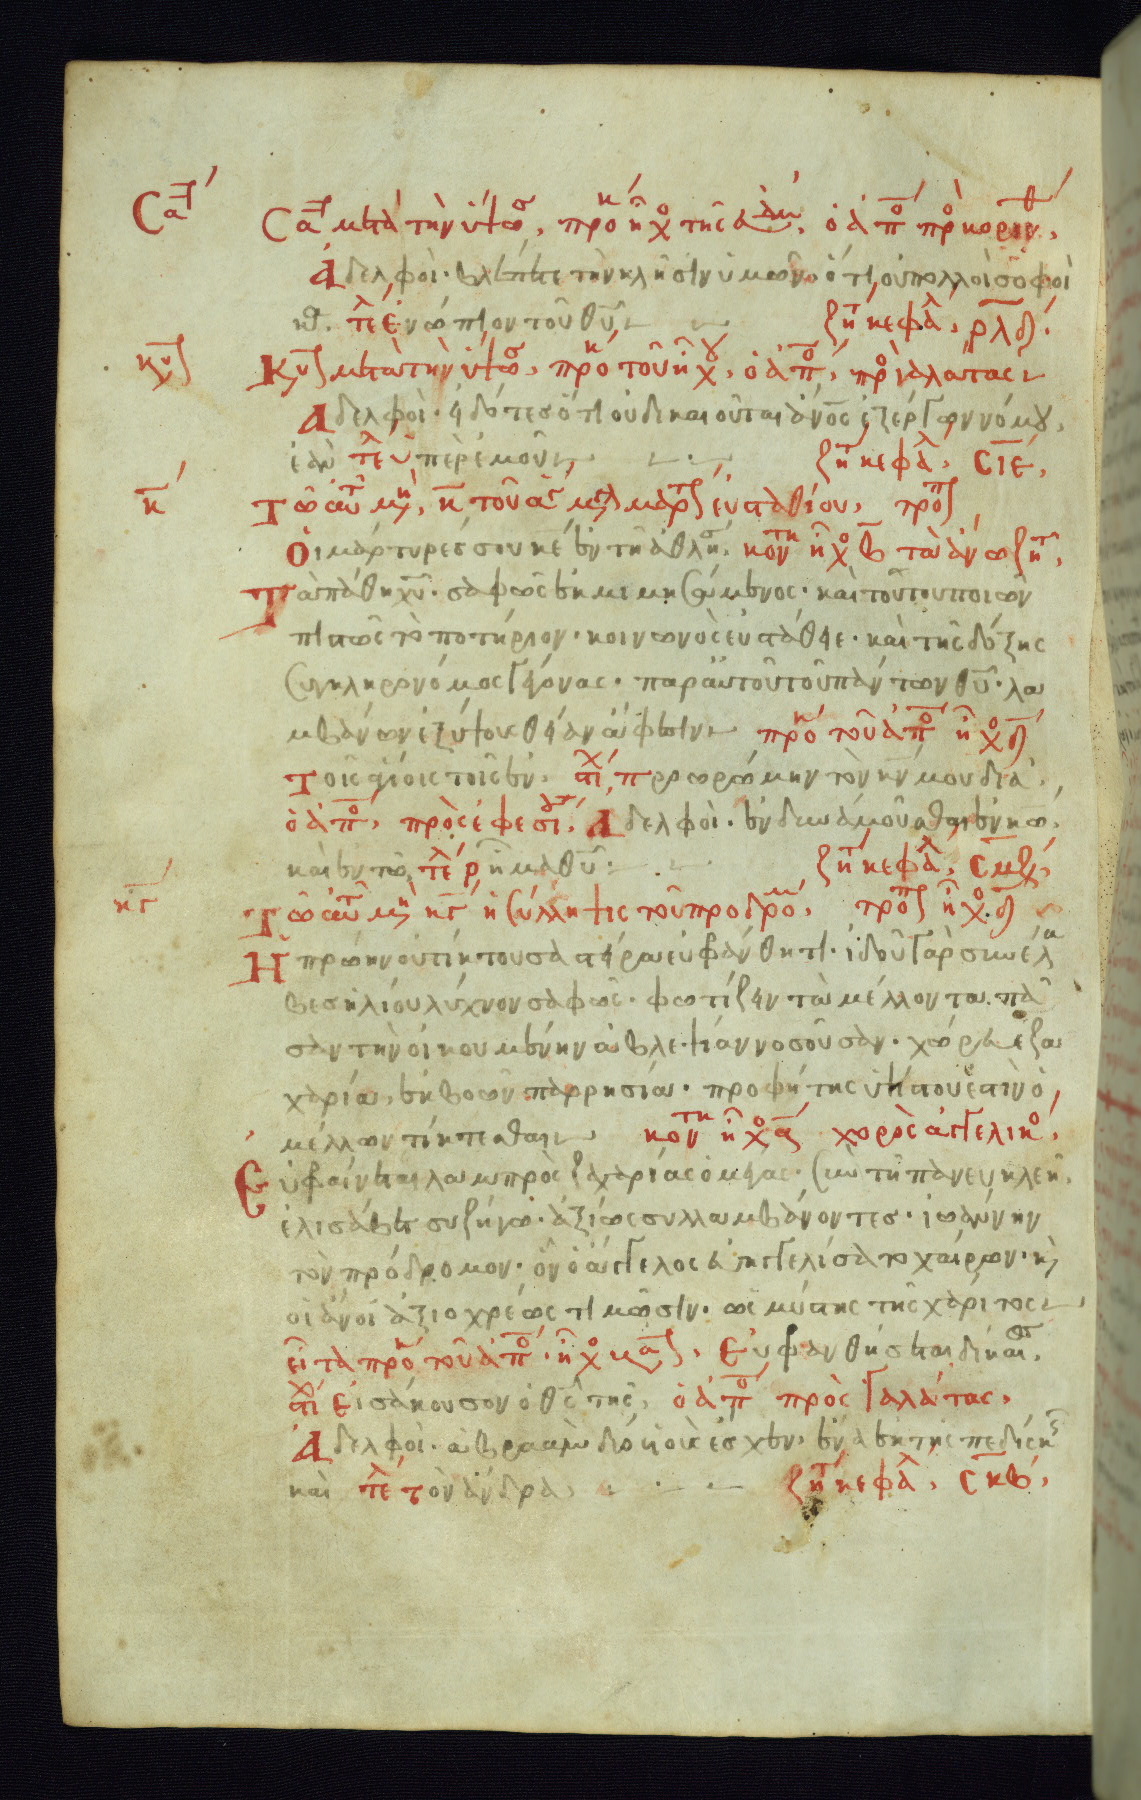 Σα
Σα μετὰ τὴν ὕψω, προκ ἦχ τῆς ὁ ἀπο πρὸ κορινθ,
Ἀδελφοὶ· βλέπετε τὴν κλῆσιν ὑμῶν ὅτι οὐ πολλοὶ σοφοὶ
κτ. τελ ἐνώπιον του θυ ζητ κεφαλ, ρλδ.
κυ
Κυ μετὰ τὴν ὕψω, προκ τοῦ ἤχου, ὁ ἀπο, πρὸ γαλάτας
Ἀδελφοὶ· εἰδότες ὅτι οὐ δικαιοῦται ἄνος ἐξ ἔργων νόμου,
ἐὰν τελ ὑπὲρ ἐμοῦ ζητ κεφαλ, σιε,
κ
Τῶ αὐτ μη, κ τοῦ ἁγ μεγαλ μαρτ εὐσταθίου, τροπ
Οἱ μάρτυρές σου κε ἐν τῆ ἀθλησ, κοντ ἦχ β τὰ ἄνω ζητ,
Τὰ πάθη χυ σαφῶς ἐκμιμησάμενος· καὶ τούτου ποιὼν
πιστῶς τὸ ποτήριον· κοινωνὸς εὐστάθιε· καὶ τῆς δόξης
συγκληρονόμος γέγονας· παρ' αὐτοῦ τοῦ πάντων θυ· λα
μβάνων ἐξ ὕψους θείαν ἄφεσιν προκ τοῦ ἀπο ἦχ δ
Τοῖς ἁγίοις τοῖς ἐν, στιχ, προωρώμην τὸν κν μου δια,
ὁ ἀπο, πρὸς ἐφεσί, Ἀδελφοὶ· ἐνδυναμοῦσθαι ἐν κω,
καὶ ἐν τῶ, τελ ῥῆμα θυ ζητ κεφαλ, σμζ,
κγ
Τῶ αὐτ μη κγ ἡ σύλληψις τοῦ προδρομ, τροπ ἦχ δ
Ἡ πρώην οὐ τίκτουσα στεῖρα εὐφράνθητι· ἰδοῦ γὰρ συνέλα
βες ἡλίου λύχνον σαφῶς· φωτίζειν τὰ μέλλοντα πᾶ
σαν τὴν οἰκουμένην ἀβλεψίαν νοσοῦσαν· χόρευε ζα
χαρία, ἐκβοῶν παρρησία· προφήτης ὑψίστου ἐστὶν ὁ
μέλλων τίκτεσθαι κοντ ἦχ α χορὸς ἀγγελικὸ,
Εὐφραίνεται λαμπρὸς ζαχαρίας ὁ μέγας· σὺν τῆ πανευκλεῆ
ἐλισάβετ συζύγω· ἀξίως συλλαμβάνοντες· ἰωάννην
τὸν πρόδρομον· ὃν ὁ ἄγγελος εὐηγγελίσατο χαίρων· καὶ
οἱ ἄνοι ἀξιοχρέως τιμῶσιν· ὡς μύστης τῆς χάριτος
εἶτα προκ τοῦ ἀπο· ἦχ Εὐφρανθήσεται δίκαι.
στιχ Εἰσάκουσον ὁ θς τῆς, ὁ ἀπο πρὸς γαλάτας,
Ἀδελφοὶ· ἀβραὰμ δύο υἱοὺς ἔσχεν, ἕνα ἐκ τῆς πεδίσκ
καὶ τελ τὸν ἄνδρα, ζητ κεφαλ, σκβ,